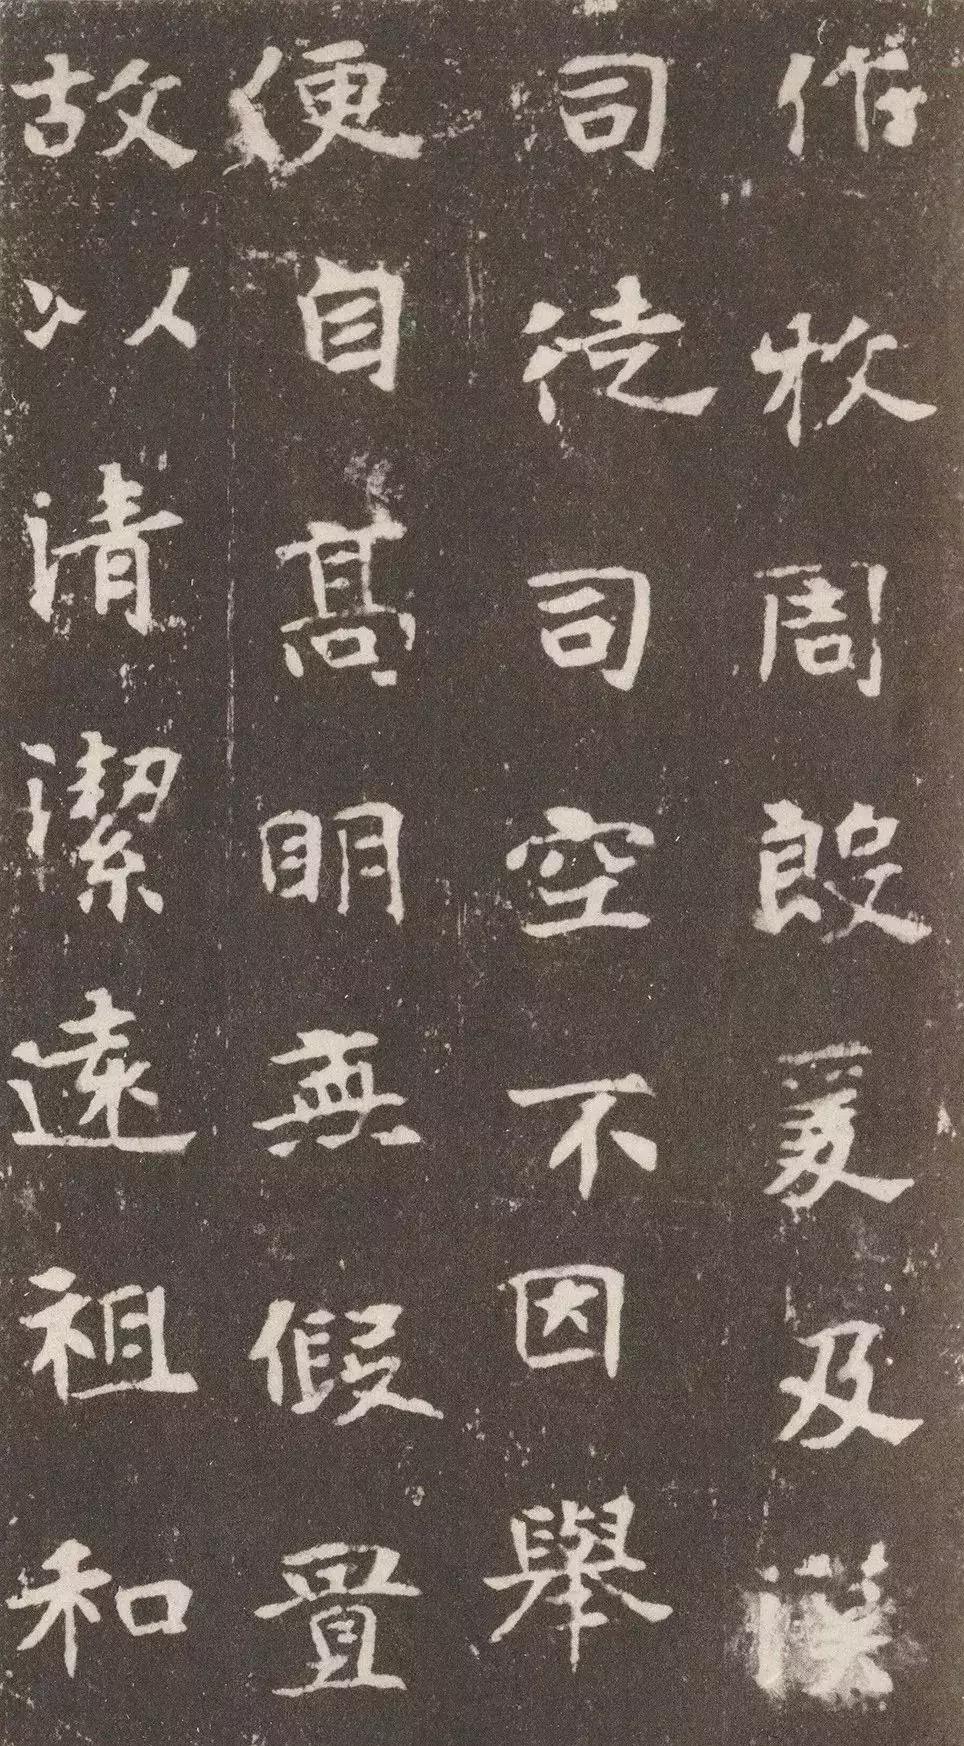 作牧周殷爰及漢
司徒司空不因舉
便自高明無假置
故以清潔遠祖和